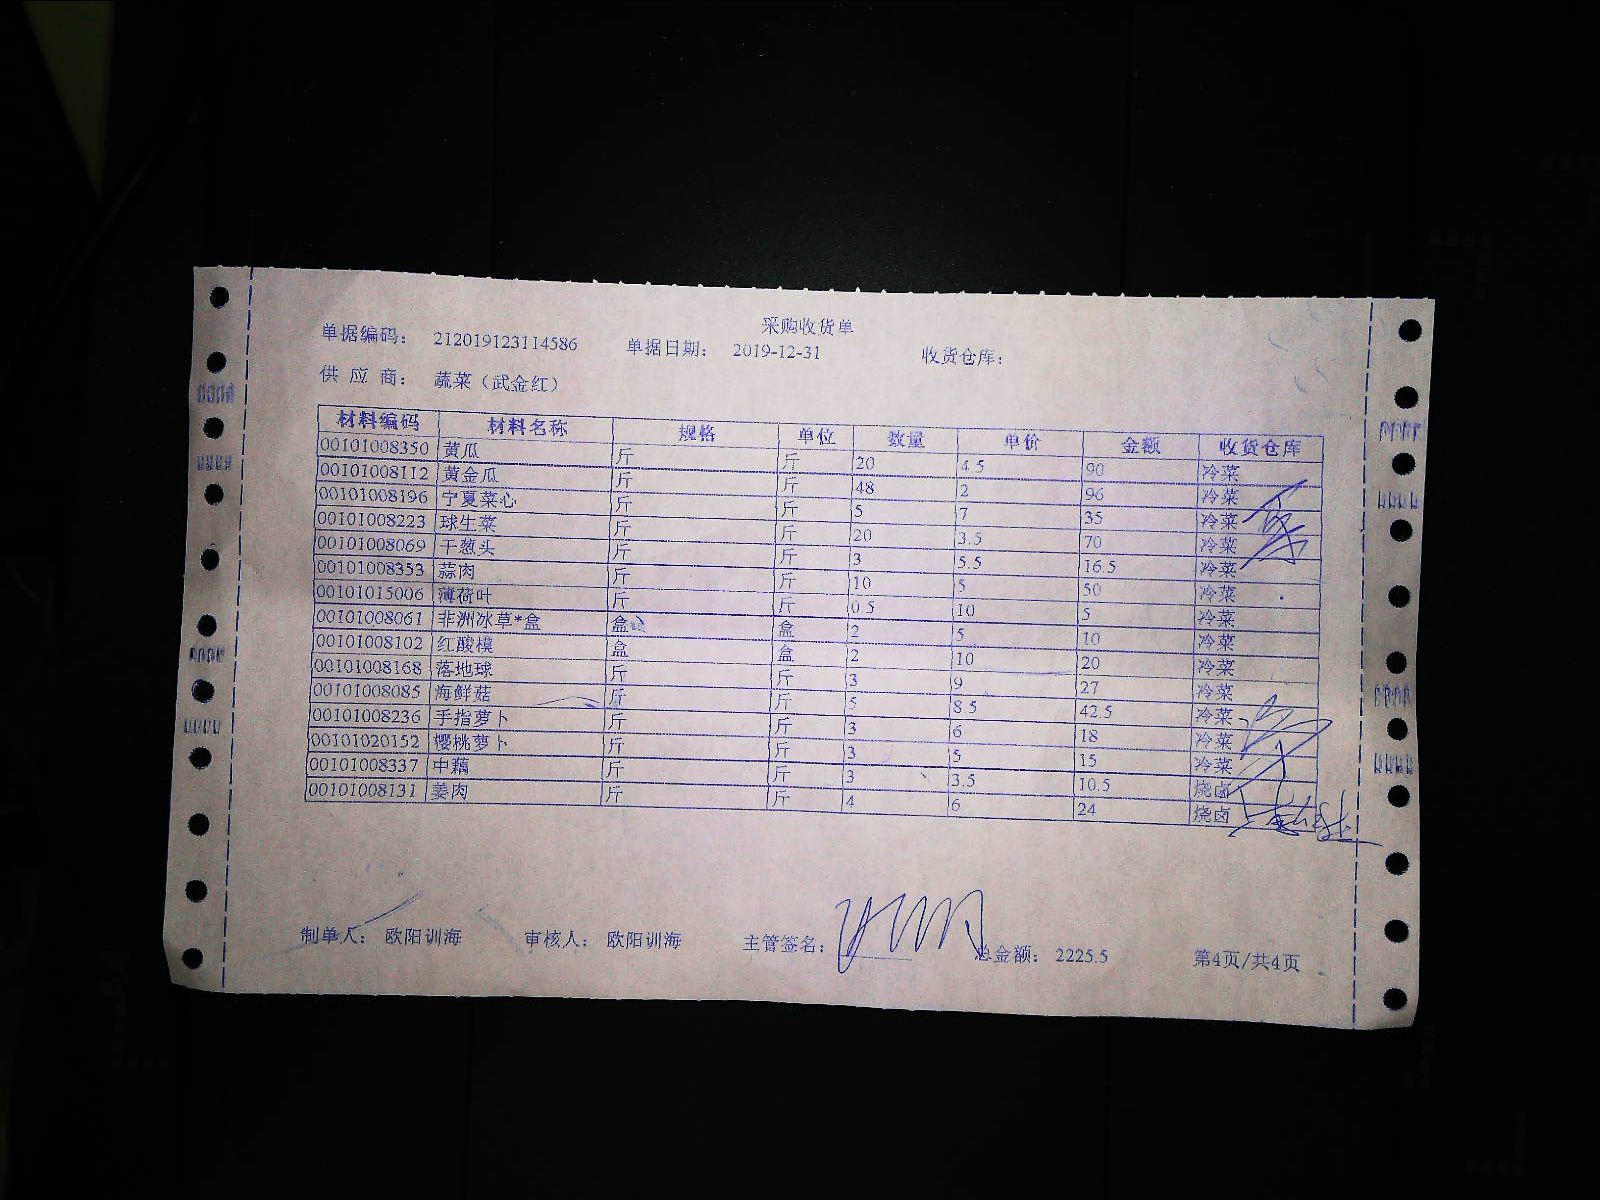 采购收货单
单据编码： 212019123114586 单据日期： 2019-12-31 收货仓库：
供 应 商： 蔬菜（武金红）
材料编码 材料名称 规格 单位 数量 单价 金额 收货仓库
00101008350 黄瓜 斤 斤 20 4.5 90 冷菜
00101008112 黄金瓜 斤 斤 48 2 96 冷菜
00101008196 宁夏菜心 斤 斤 5 7 35 冷菜
00101008223 球生菜 斤 斤 20 3.5 70 冷菜
00101008069 干葱头 斤 斤 3 5.5 16.5 冷菜
00101008353 蒜肉 斤 斤 10 5 50 冷菜
00101015006 薄荷叶 斤 斤 0.5 10 5 冷菜
00101008061 非洲冰草*盒 盒 盒 2 5 10 冷菜
00101008102 红酸模 盒 盒 2 10 20 冷菜
00101008168 落地球 斤 斤 3 9 27 冷菜
00101008085 海鲜菇 斤 斤 5 8.5 42.5 冷菜
00101008236 手指萝卜 斤 斤 3 6 18 冷菜
00101020152 樱桃萝卜 斤 斤 3 5 15 冷菜
00101008337 中藕 斤 斤 3 3.5 10.5 烧卤
00101008131 姜肉 斤 斤 4 6 24 烧卤
制单人： 欧阳训海 审核人： 欧阳训海 主管签名： 总金额： 2225.5 第4页/共4页